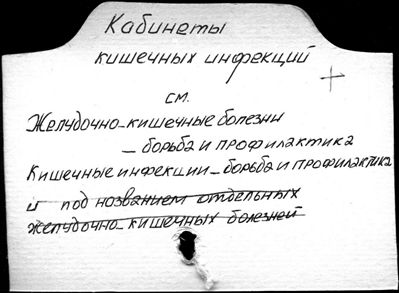 Кабинеты
кишечных инфекций
см.
Желудочно-кишечные болезни
– борьба и профилактика
Кишечные инфекции – борьба и профилактика
и под названием отдельных
желудочно-кишечных болезней